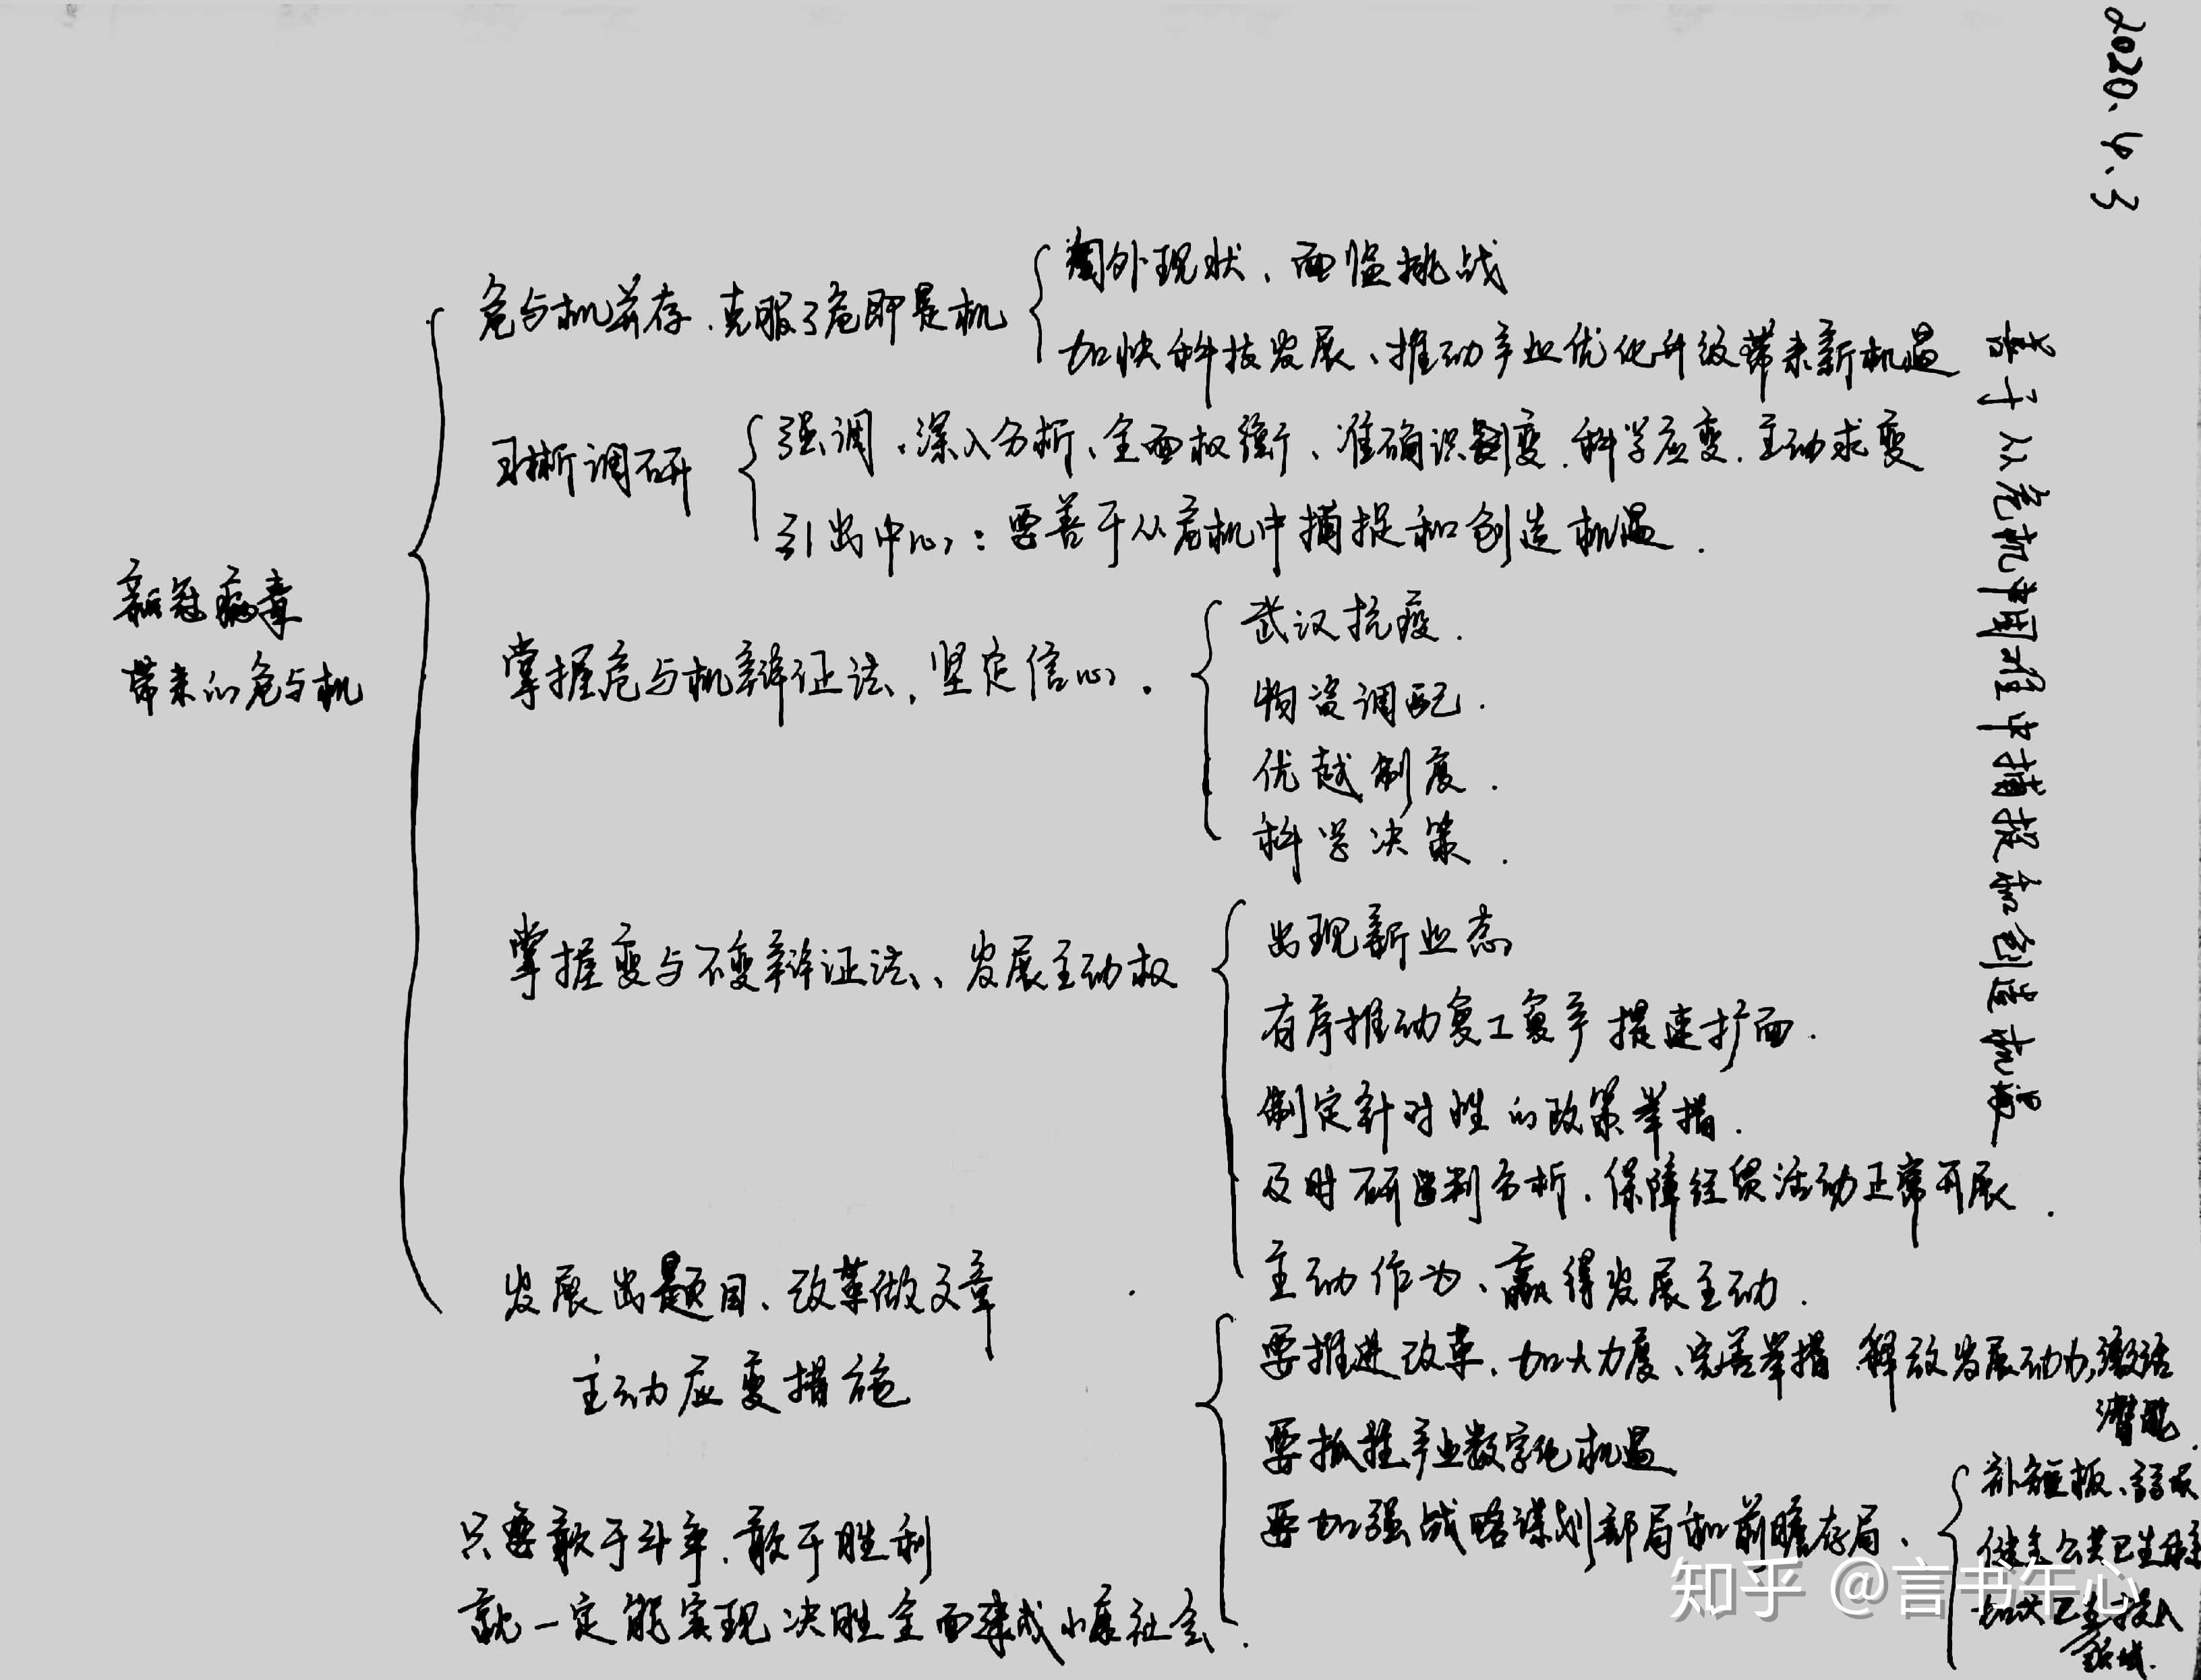 2020.4.3
善于从危机中困难中捕捉和创造机遇
新冠病毒
带来的危与机
危与机并存、克服了危即是机
国外现状、面临挑战
加快科技发展、推动产业优化升级带来新机遇
调研
强调、深入分析、全面权衡、准确识变、科学应变、主动求变
引出中心：要善于从危机中捕捉和创造机遇.
掌握危与机辩证法、坚定信心.
武汉抗疫.
物资调配.
优越制度.
科学决策.
掌握变与不变辩证法、发展主动权
出现新业态
有序推动复工复产 提速扩面.
制定针对性的政策举措.
及时研判分析、保障经贸活动正常开展.
主动作为、赢得发展主动.
发展出题目、改革做文章
主动应变措施
要推进改革、加大力度、完善举措 释放发展动力,激活
潜能.
要抓住产业数字化机遇
要加强战略谋划部局和前瞻布局、
补短板、弱项
健全公共卫生体系
加大卫生投入
领域.
只要敢于斗争、敢于胜利
就一定能实现决胜全面建成小康社会.
知乎 @言书午心